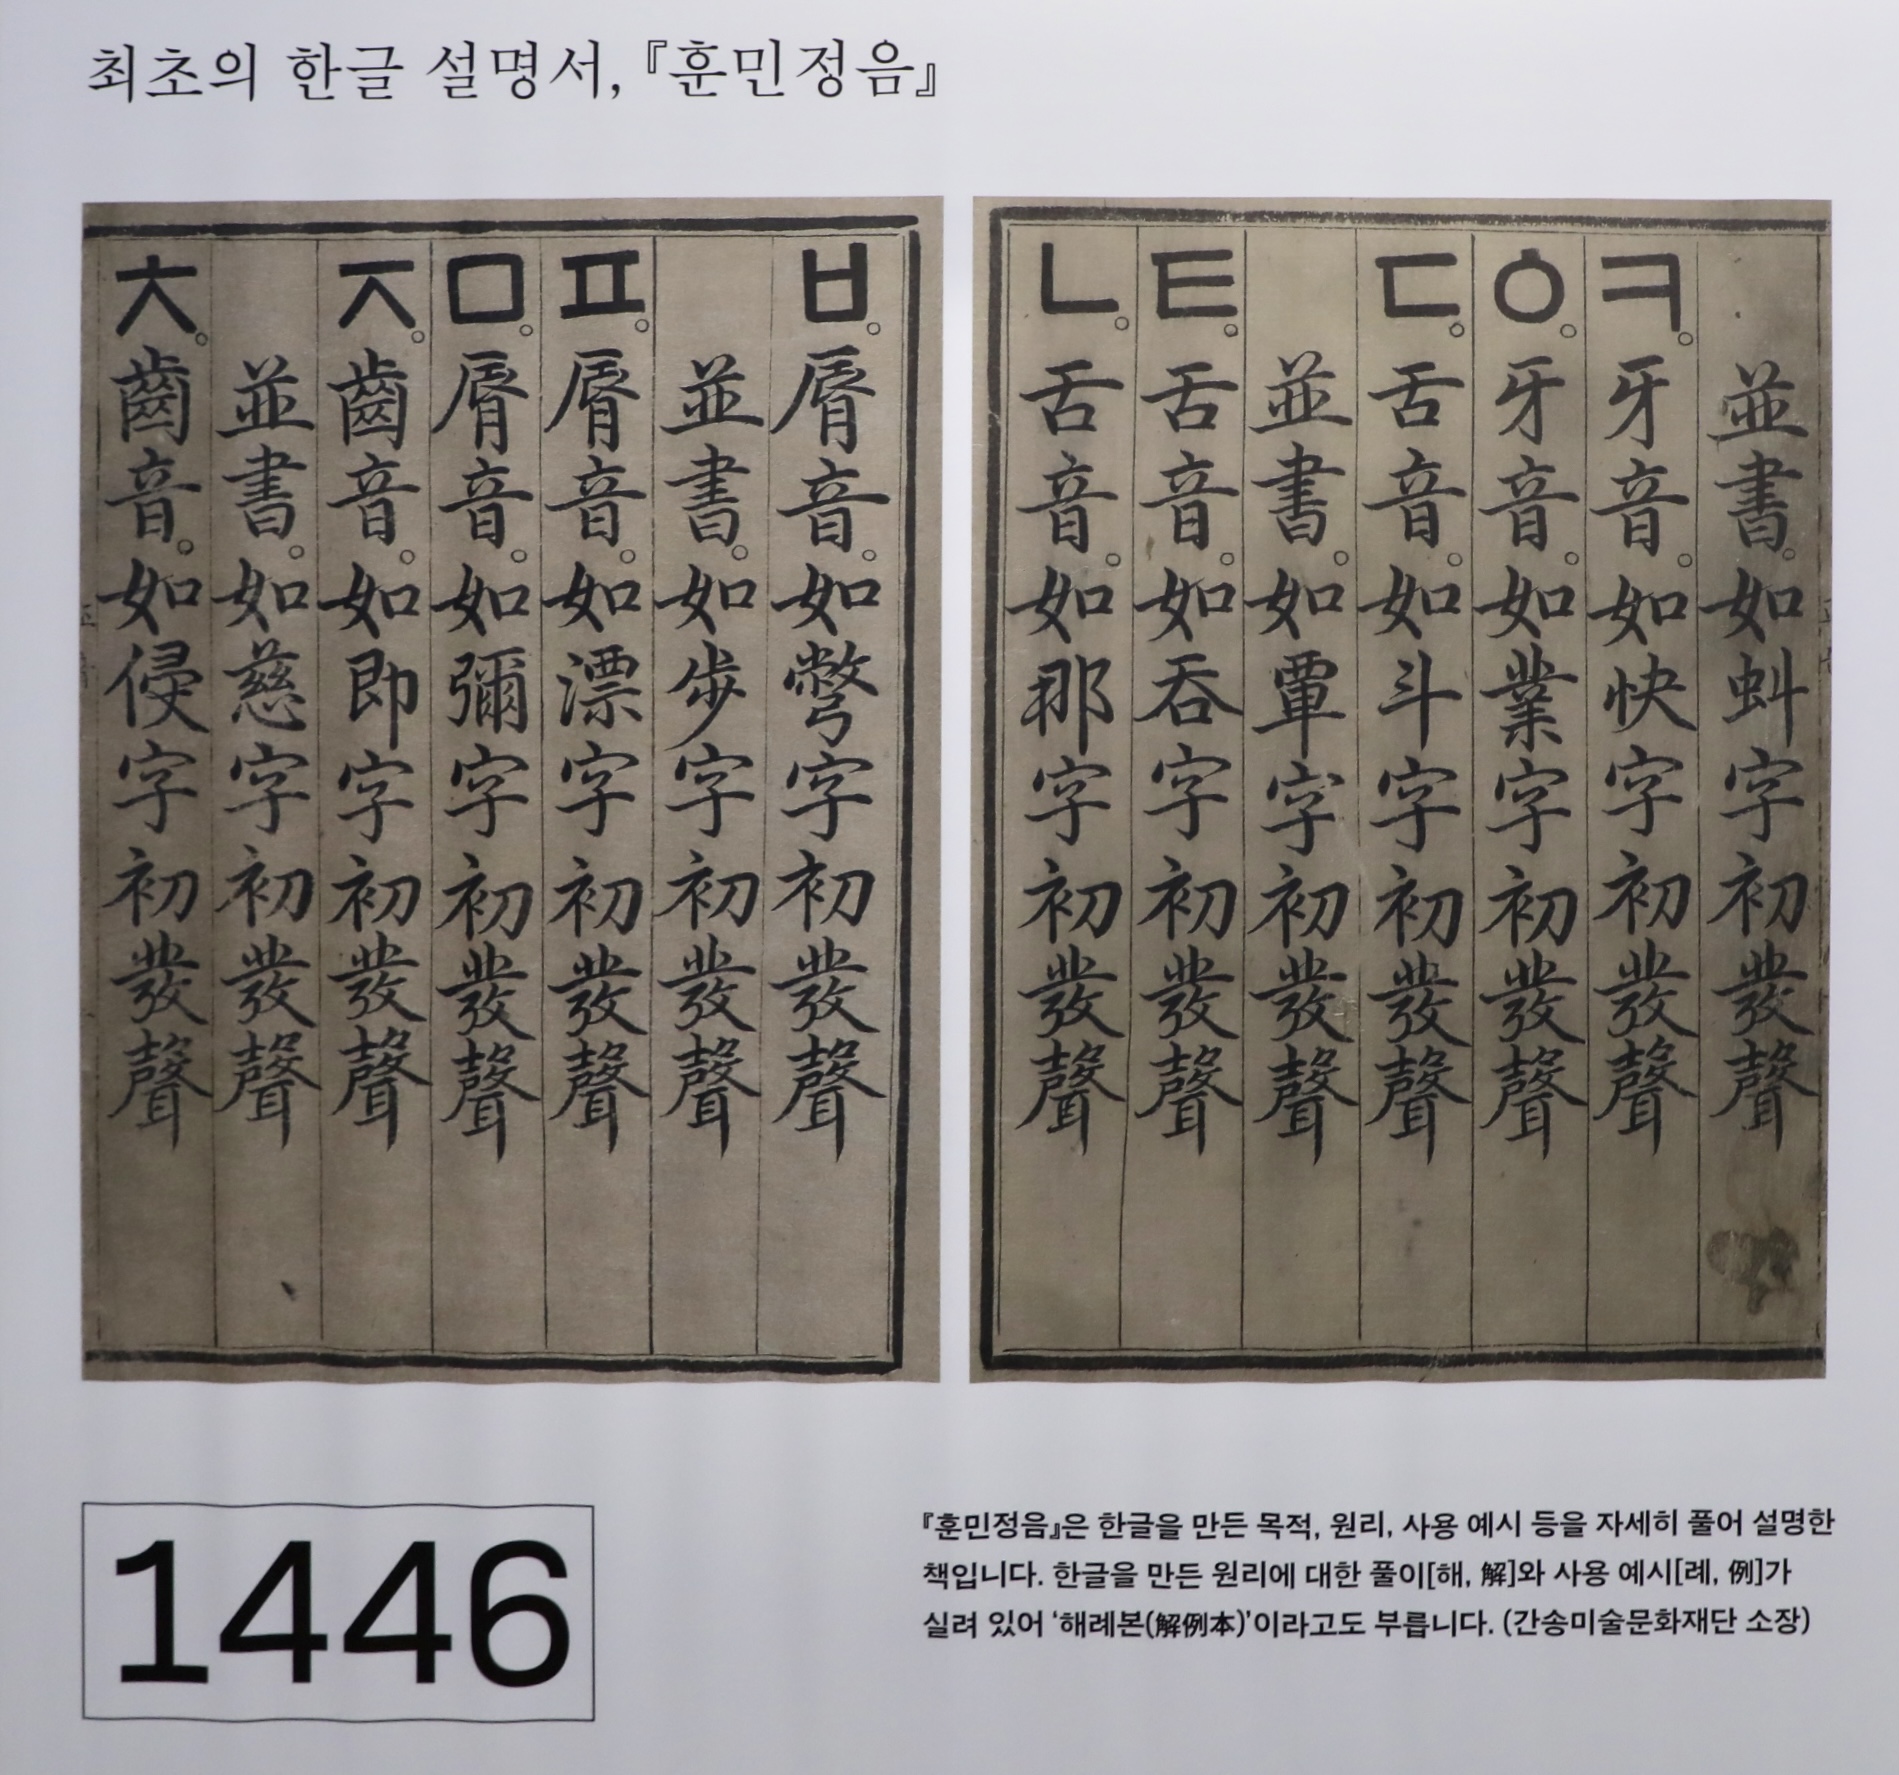 최초의 한글 설명서, 『훈민정음』
並書。如虯字初發聲
ㅋ。牙音。如快字初發聲
ㆁ。牙音。如業字初發聲
ㄷ。舌音。如斗字初發聲
並書。如覃字初發聲
ㅌ。舌音。如呑字初發聲
ㄴ。舌音。如那字初發聲
ㅂ。脣音。如彆字初發聲
並書。如步字初發聲
ㅍ。脣音。如漂字初發聲
ㅁ。脣音。如彌字初發聲
ㅈ。齒音。如即字初發聲
並書。如慈字初發聲
ㅊ。齒音。如侵字初發聲
1446
『훈민정음』은 한글을 만든 목적, 원리, 사용 예시 등을 자세히 풀어 설명한
책입니다. 한글을 만든 원리에 대한 풀이[해, 解]와 사용 예시[례, 例]가
실려 있어 ‘해례본(解例本)’이라고도 부릅니다. (간송미술문화재단 소장)